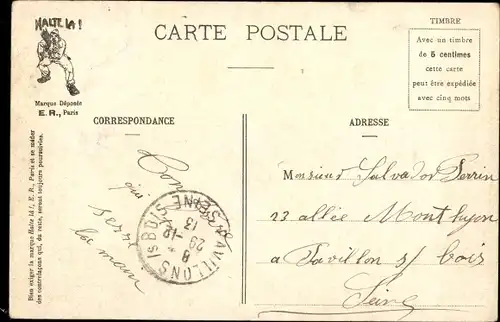 HALTE LA !
CARTE POSTALE
TIMBRE
Avec un timbre
de 5 centimes
cette carte
peut être expédiée
avec cinq mots
Marque Déposée
E. R., Paris
CORRESPONDANCE
ADRESSE
Bien exiger la marque Halte là !, E. R., Paris et se méfier
des contrefaçons qui, du reste, seront toujours poursuivies.
qui
serre
la main
PAVILLONS S BOIS
SEINE
8
29 -12
13
Monsieur Salvador Perrin
23 allée Monthyon
a Pavillon s/ bois
Seine